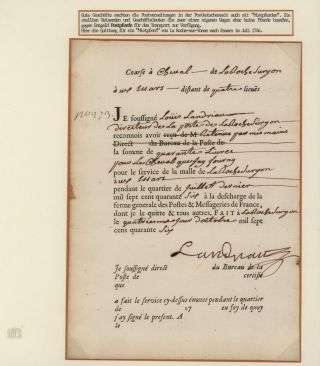 Gute Geschäfte machten die Postverwaltungen in der Postkutschenzeit auch mit "Mietpferden". Sie
stellten Reisenden und Geschäftsleuten die zwar einen eigenen Wagen aber keine Pferde besaßen,
gegen Entgeld Postpferde für den Transport zur Verfügung.
Hier die Quittung für ein "Mietpferd" von La Roche-sur-Yonne nach Ensars im Juli 1746.
Course à Cheval de LaRocheSuryon
à mars distant de quatre lieües
JE soussigné Louis Landriau
directeur des La poste de LaRocheSuryon
reconnois avoir reçu de M Retenu par mes mains
Direct du Bureau de la Poste de
la somme de quarante Livres
pour Le Cheval que j'ay fourny
pour le service de la malle de LaRocheSuryon
à mars
pendant le quartier de juillet dernier
mil sept cent quarante six à la descharge de la
ferme generalle des Postes & Messageries de France,
dont je le quitte & tous autres, FAIT à LaRocheSuryon
le quatriesme jour d'octobre mil sept
cens quarante six
Landriau
Je soussigné direct du Bureau de la
Poste de certifie
que
a fait le service cy-dessus énoncé pendant le quartier
de 17 en foy de quoy
j'ay signé le present. A
le